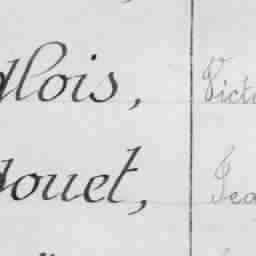 glois, Victo
douet, Jea